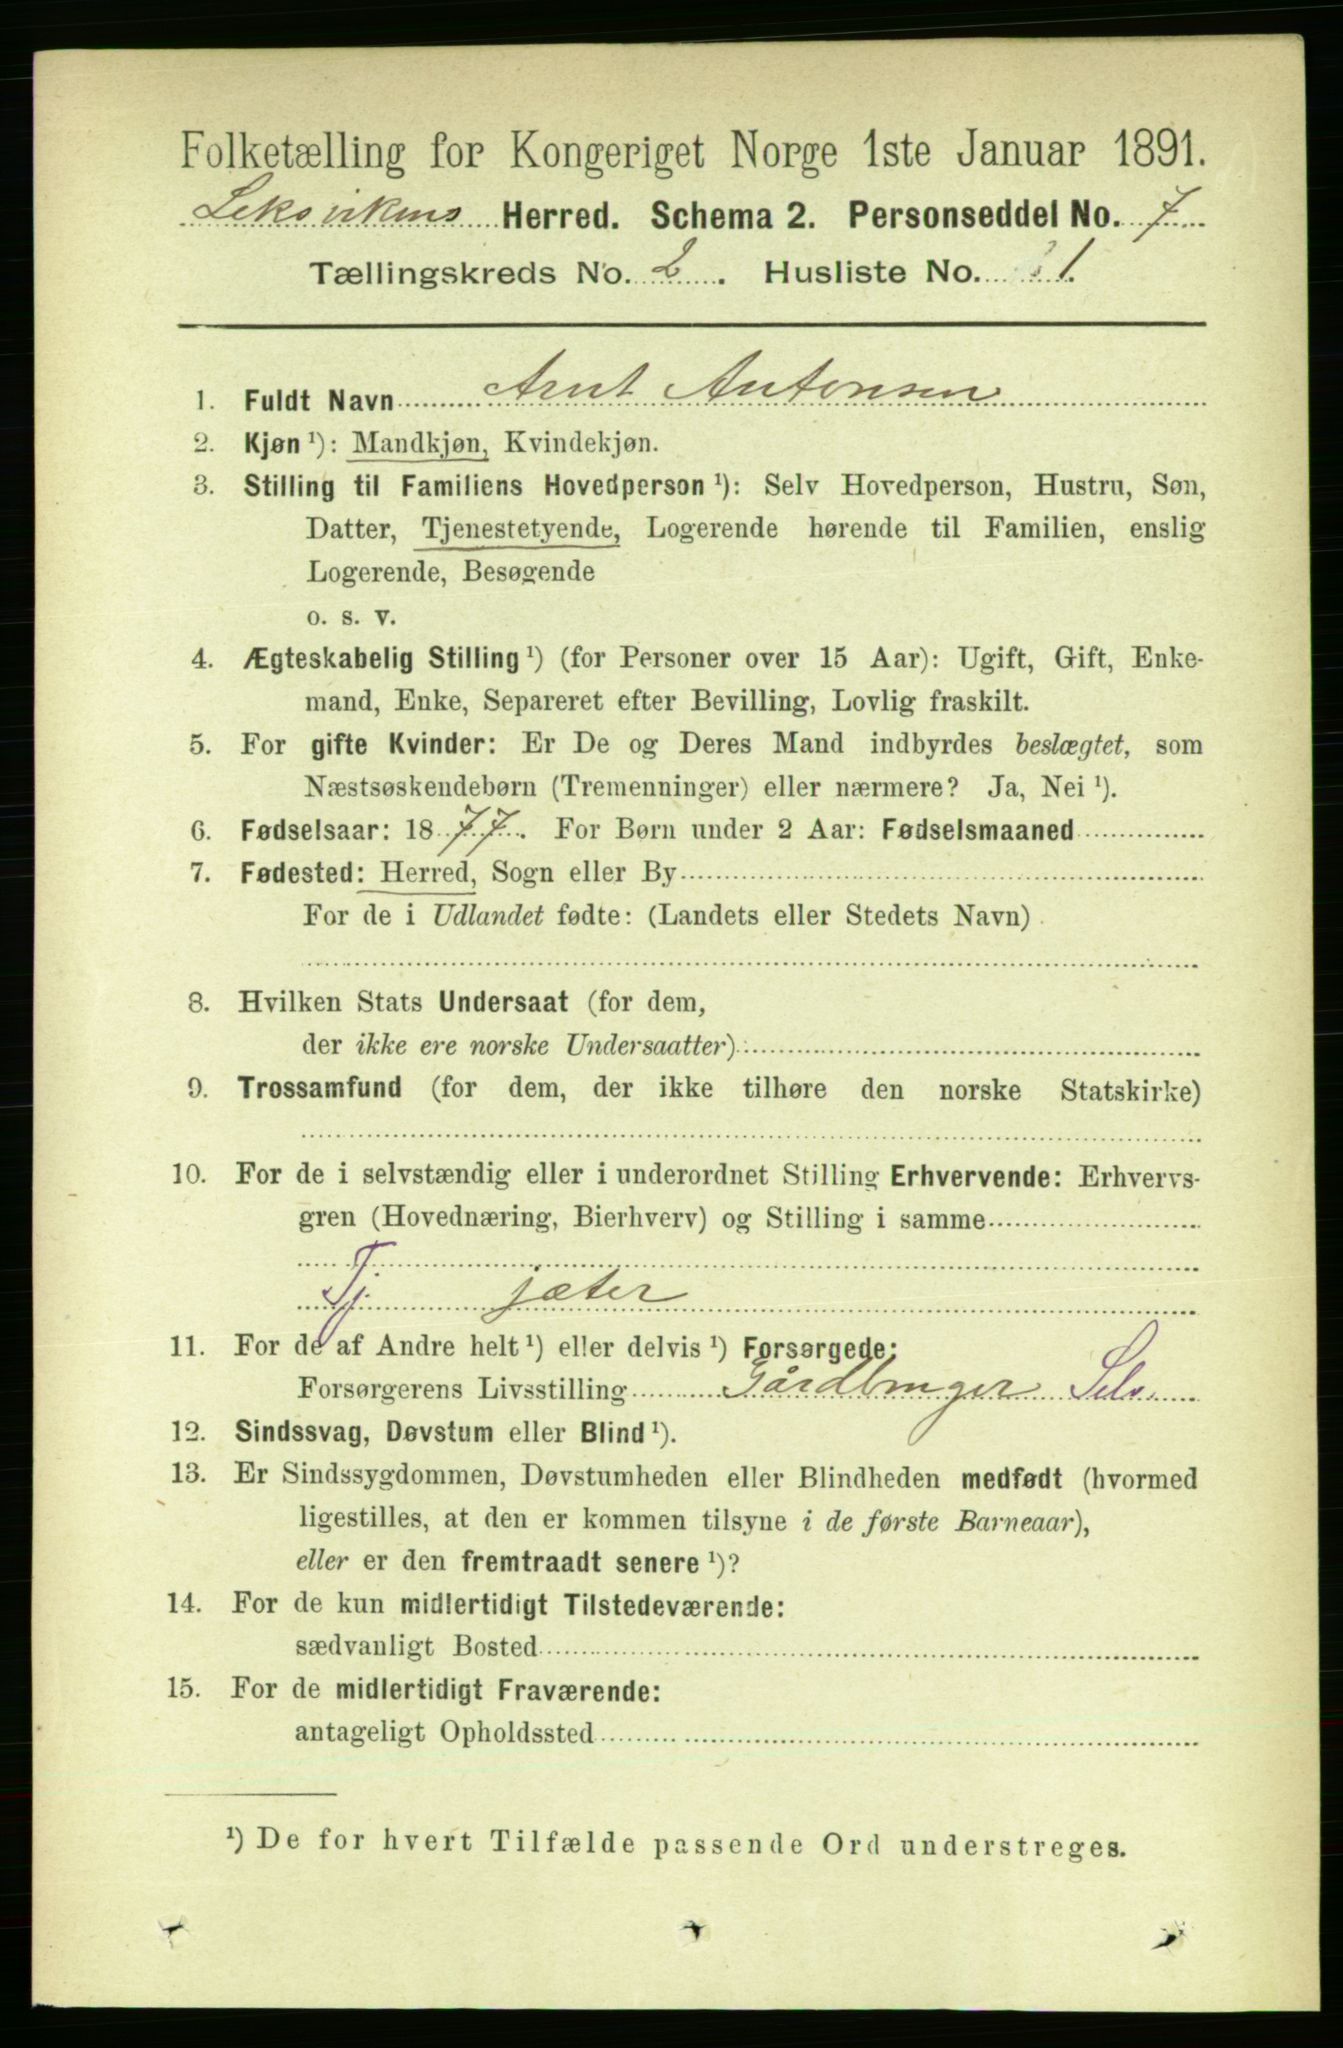 Folketælling for Kongeriget Norge 1ste Januar 1891.
Leksvikens Herred. Schema 2. Personseddel No. 7
Tællingskreds No. 2. Husliste No. 1.
1. Fuldt Navn Arnt Antonsen
2. Kjøn ¹): Mandkjøn, Kvindekjøn.
3. Stilling til Familiens Hovedperson ¹): Selv Hovedperson, Hustru, Søn,
Datter, Tjenestetyende, Logerende hørende til Familien, enslig
Logerende, Besøgende
o. s. v.
4. Ægteskabelig Stilling ¹) (for Personer over 15 Aar): Ugift, Gift, Enke-
mand, Enke, Separeret efter Bevilling, Lovlig fraskilt.
5. For gifte Kvinder: Er De og Deres Mand indbyrdes beslægtet, som
Næstsøskendebørn (Tremenninger) eller nærmere? Ja, Nei ¹).
6. Fødselsaar: 1877. For Børn under 2 Aar: Fødselsmaaned
7. Fødested: Herred, Sogn eller By
For de i Udlandet fødte: (Landets eller Stedets Navn)
8. Hvilken Stats Undersaat (for dem,
der ikke ere norske Undersaatter):
9. Trossamfund (for dem, der ikke tilhøre den norske Statskirke)
10. For de i selvstændig eller i underordnet Stilling Erhvervende: Erhvervs-
gren (Hovednæring, Bierhverv) og Stilling i samme
Tj. jæter
11. For de af Andre helt ¹) eller delvis ¹) Forsørgede:
Forsørgerens Livsstilling Gårdbruger Selv.
12. Sindssvag, Døvstum eller Blind ¹).
13. Er Sindssygdommen, Døvstumheden eller Blindheden medfødt (hvormed
ligestilles, at den er kommen tilsyne i de første Barneaar),
eller er den fremtraadt senere ¹)?
14. For de kun midlertidigt Tilstedeværende:
sædvanligt Bosted
15. For de midlertidigt Fraværende:
antageligt Opholdssted
¹) De for hvert Tilfælde passende Ord understreges.